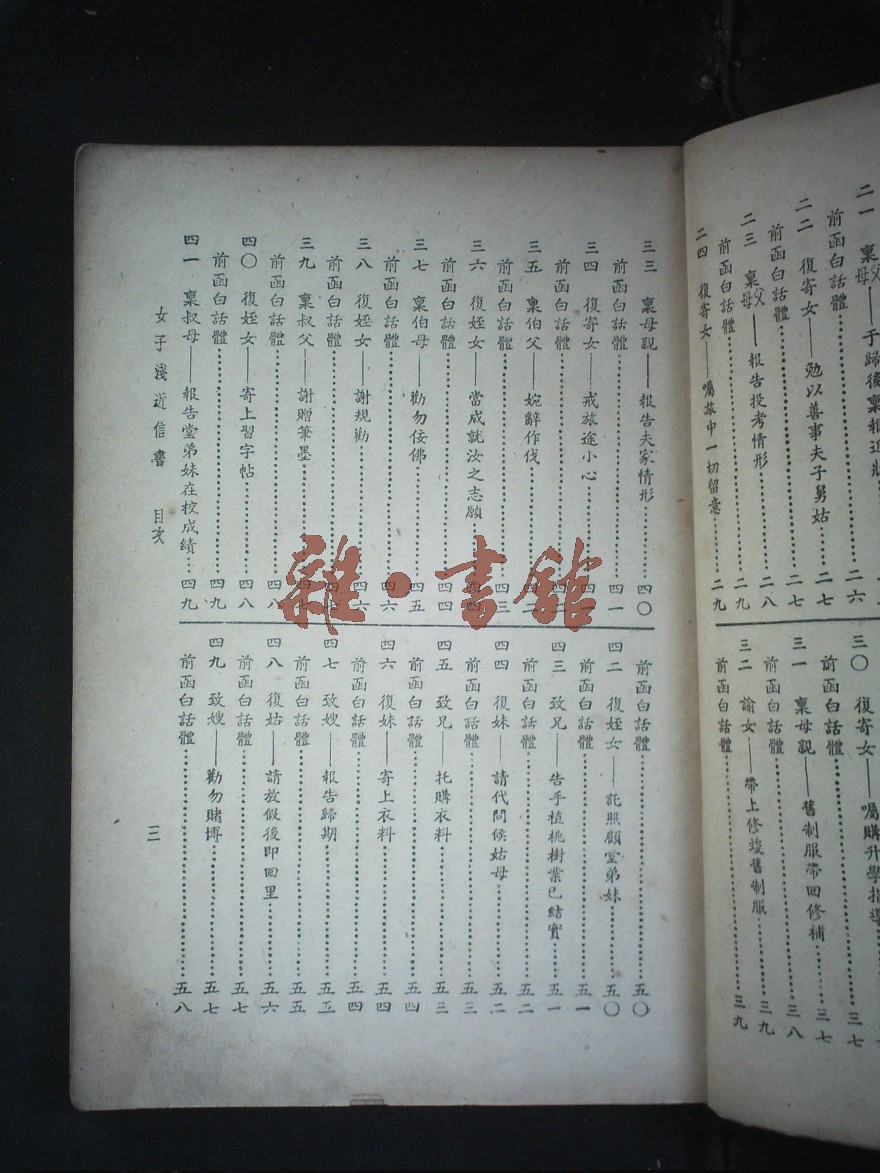 二一 稟父母——于歸後稟報近狀……二六
前函白話體……
二二 復寄女——勉以善事夫子舅姑……二七
前函白話體……二七
二三 稟父母——報告投考情形……二八
前函白話體……二九
二四 復寄女——囑旅中一切留意……二九
三〇 復寄女——囑購升學指導……三七
前函白話體……三七
三一 稟母親——舊制服帶回修補……三八
前函白話體……三九
三二 諭女——帶上修竣舊制服……三九
前函白話體
三三 稟母親——報告夫家情形……四〇
前函白話體……四一
三四 復寄女——戒旅途小心
前函白話體
三五 稟伯父——婉辭作伐……四二
前函白話體……四三
三六 復姪女——當成就汝之志願……四四
前函白話體……四四
三七 稟伯母——勸勿佞佛……四五
前函白話體……四六
三八 復姪女——謝規勸……四六
前函白話體
三九 稟叔父——謝贈筆墨……四七
前函白話體……四八
四〇 復姪女——寄上習字帖……四八
前函白話體……四九
四一 稟叔母——報告堂弟妹在校成績……四九
前函白話體……五〇
四二 復姪女——託照顧堂弟妹……五〇
前函白話體……五一
四三 致兄——告手植桃樹業已結實……五一
前函白話體……五二
四四 復妹——請代問候姑母……五二
前函白話體……五三
四五 致兄——托購衣料……五三
前函白話體……五四
四六 復妹——寄上衣料……五四
前函白話體……五四
四七 致嫂——報告歸期……五五
前函白話體……五五
四八 復姑——請放假後即回里……五六
前函白話體……五七
四九 致嫂——勸勿賭博……五七
前函白話體……五八
女子淺近信書 目次
三
雜·書館